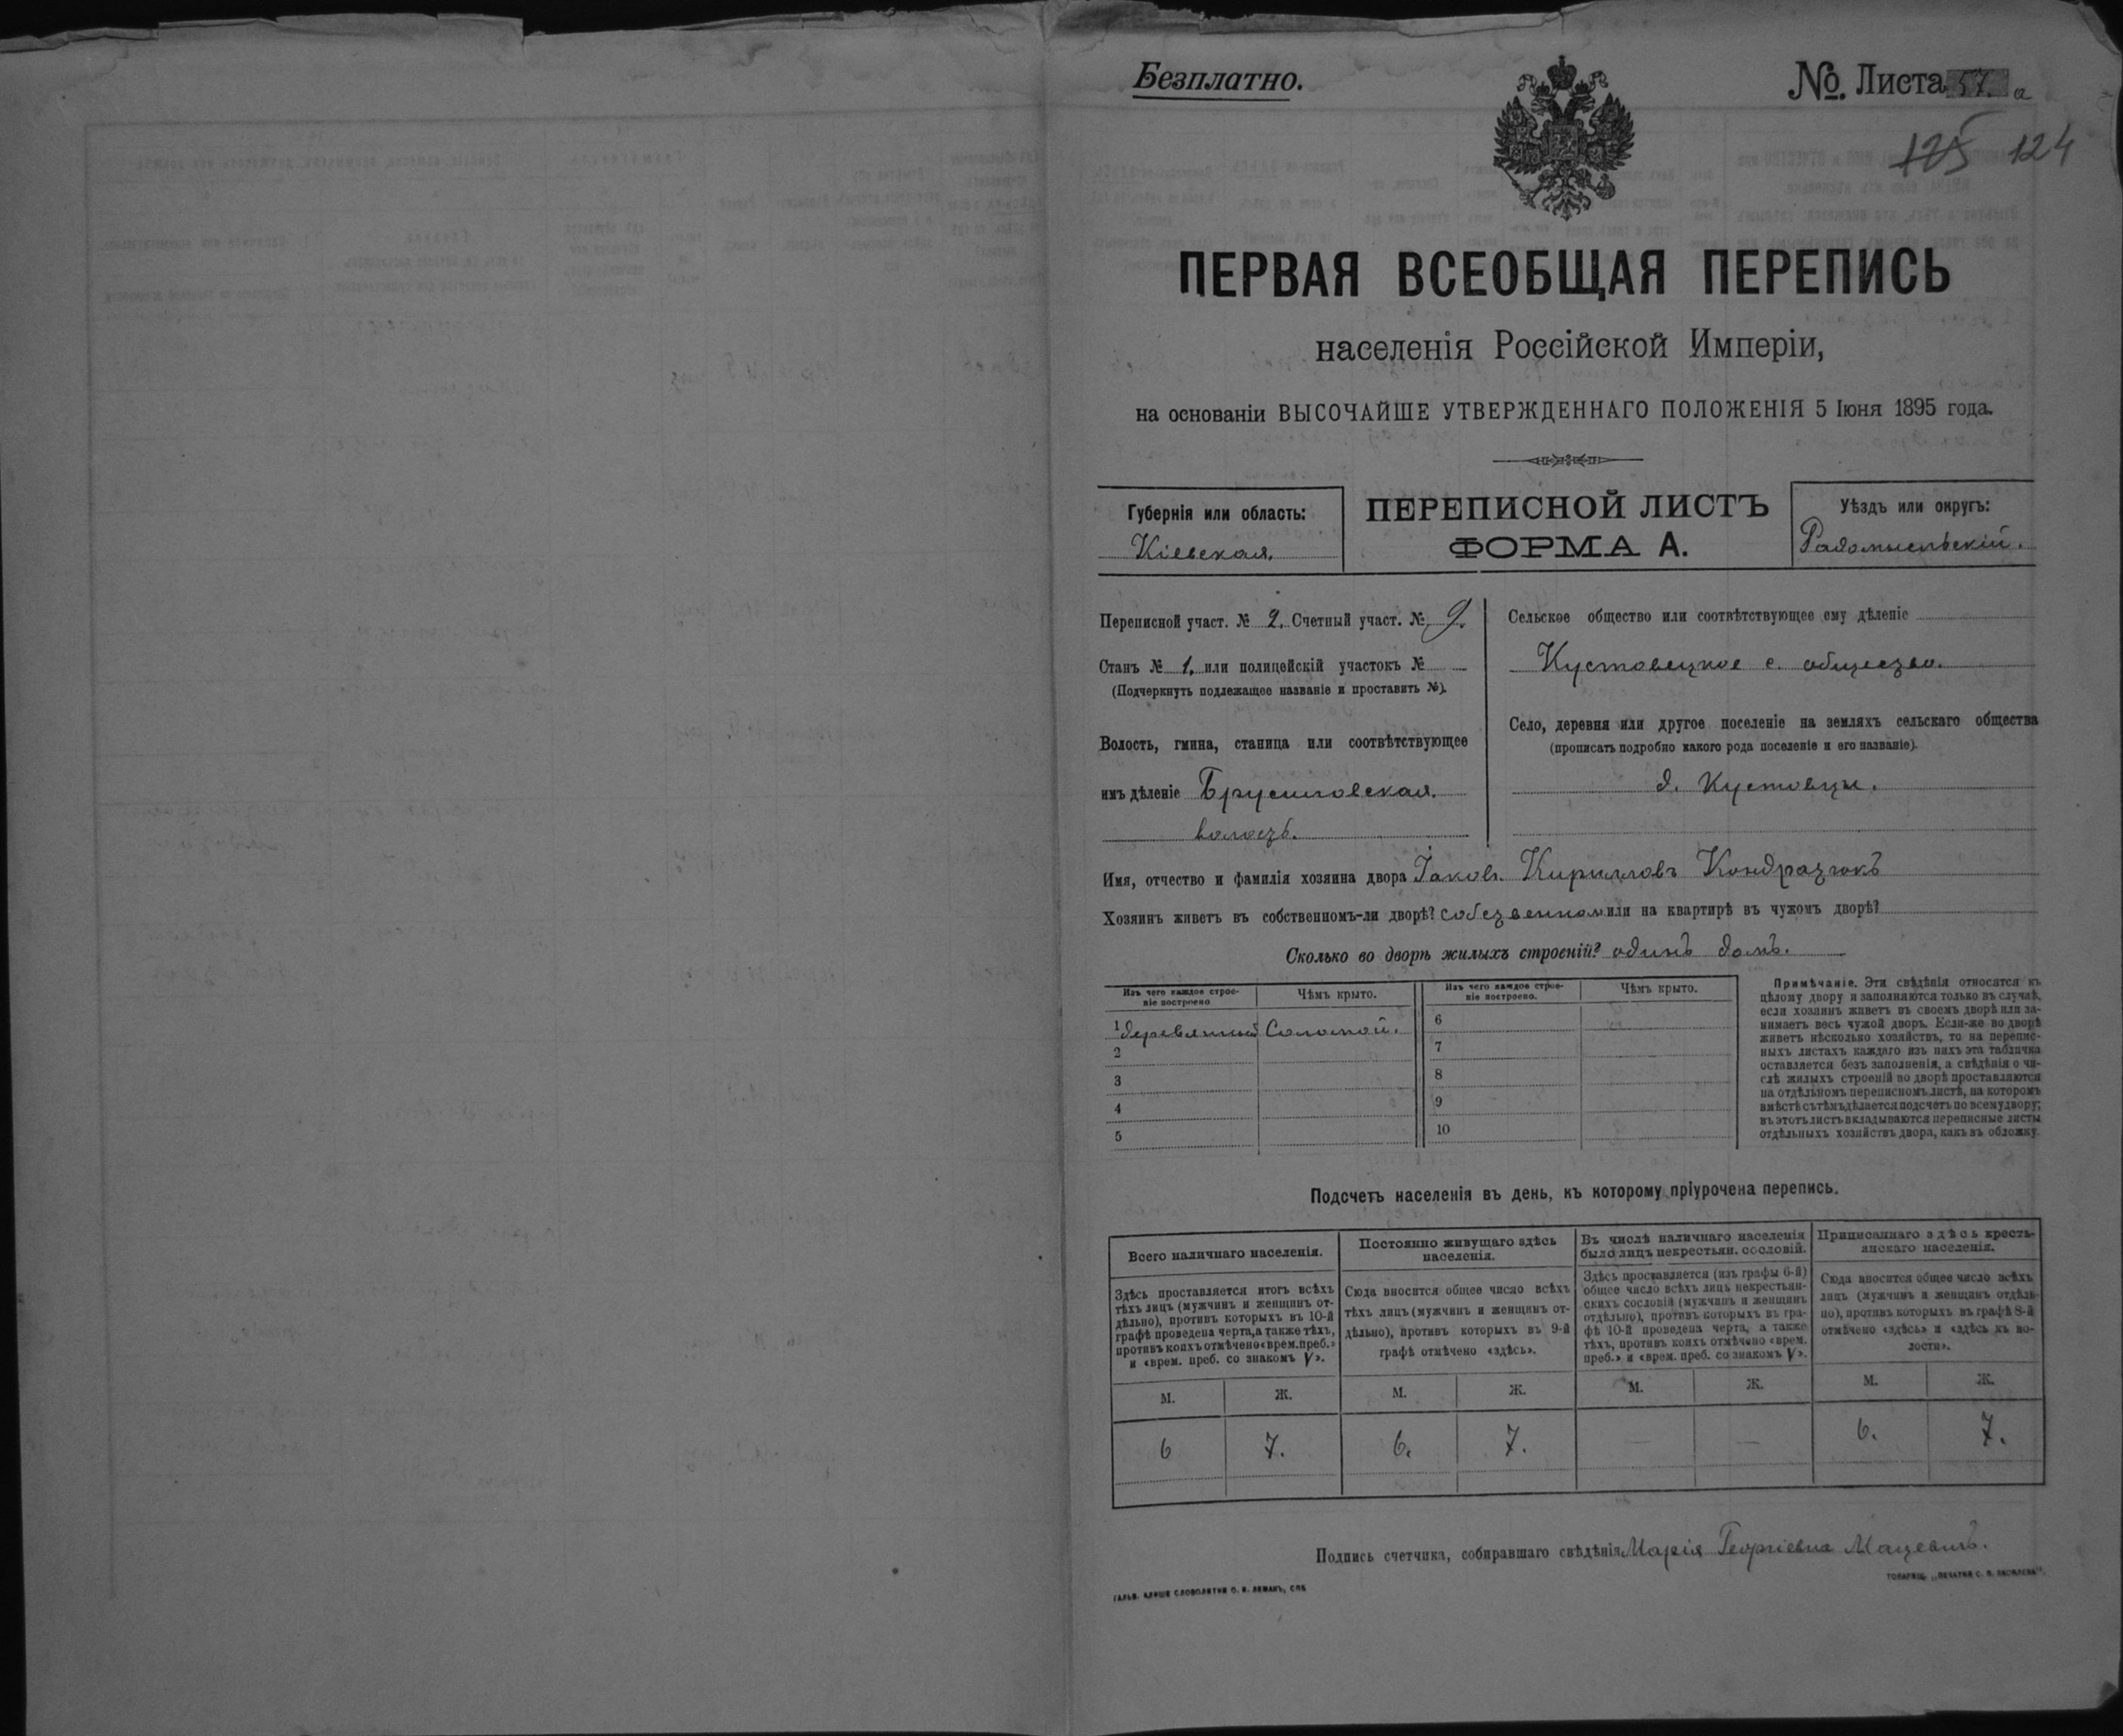 Безплатно.
№ Листа 57. а
125 124
ПЕРВАЯ ВСЕОБЩАЯ ПЕРЕПИСЬ
населенія Россійской Имперіи,
на основаніи ВЫСОЧАЙШЕ УТВЕРЖДЕННАГО ПОЛОЖЕНІЯ 5 Іюня 1895 года.
Губернія или область:
Кіевская.
ПЕРЕПИСНОЙ ЛИСТЪ
ФОРМА А.
Уѣздъ или округъ:
Радомысльскій.
Переписной участ. № 2. Счетный участ. № 9.
Станъ № 1. или полицейскій участокъ №
(Подчеркнуть подлежащее названіе и проставить №).
Волость, гмина, станица или соотвѣтствующее
имъ дѣленіе Брусиловская
волость.
Сельское общество или соотвѣтствующее ему дѣленіе
Кустовецкое с. общество.
Село, деревня или другое поселеніе на земляхъ сельскаго общества
(прописать подробно какого рода поселеніе и его названіе).
д. Кустовцы.
Имя, отчество и фамилія хозяина двора Іаковъ Кирилловъ Кондратюкъ
Хозяинъ живетъ въ собственномъ-ли дворѣ? собственном или на квартирѣ въ чужомъ дворѣ?
Сколько во дворѣ жилыхъ строеній? одинъ домъ.
Изъ чего каждое строе-
ніе построено
Чѣмъ крыто.
Изъ чего каждое строе-
ніе построено.
Чѣмъ крыто.
1 деревянный Соломой. 6
2 7
3 8
4 9
5 10
Примѣчаніе. Эти свѣдѣнія относятся къ
цѣлому двору и заполняются только въ случаѣ,
если хозяинъ живетъ въ своемъ дворѣ или за-
нимаетъ весь чужой дворъ. Если-же во дворѣ
живетъ нѣсколько хозяйствъ, то на перепис-
ныхъ листахъ каждаго изъ нихъ эта табличка
оставляется безъ заполненія, а свѣдѣнія о чи-
слѣ жилыхъ строеній во дворѣ проставляются
на отдѣльномъ переписномъ листѣ, на которомъ
вмѣстѣ съ тѣмъ дѣлается подсчетъ по всему двору;
въ этотъ листъ вкладываются переписные листы
отдѣльныхъ хозяйствъ двора, какъ въ обложку.
Подсчетъ населенія въ день, къ которому пріурочена перепись.
Всего наличнаго населенія.
Здѣсь проставляется итогъ всѣхъ
тѣхъ лицъ (мужчинъ и женщинъ от-
дѣльно), противъ которыхъ въ 10-й
графѣ проведена черта, а также тѣхъ,
противъ коихъ отмѣчено «врем. преб.»
и «врем. преб. со знакомъ V».
Постоянно живущаго здѣсь
населенія.
Сюда вносится общее число всѣхъ
тѣхъ лицъ (мужчинъ и женщинъ от-
дѣльно), противъ которыхъ въ 9-й
графѣ отмѣчено «здѣсь».
Въ числѣ наличнаго населенія
было лицъ некрестьян. сословій.
Здѣсь проставляется (изъ графы 6-й)
общее число всѣхъ лицъ некрестьян-
скихъ сословій (мужчинъ и женщинъ
отдѣльно), противъ которыхъ въ гра-
фѣ 10-й проведена черта, а также
тѣхъ, противъ коихъ отмѣчено «врем.
преб.» и «врем. преб. со знакомъ V».
Приписаннаго здѣсь кресть-
янскаго населенія.
Сюда вносится общее число всѣхъ
лицъ (мужчинъ и женщинъ отдѣль-
но), противъ которыхъ въ графѣ 8-й
отмѣчено «здѣсь» и «здѣсь къ во-
лости».
М. Ж. М. Ж. М. Ж. М. Ж.
6 7. 6. 7. — — 6. 7.
Подпись счетчика, собиравшаго свѣдѣнія Марія Георгіевна Мацевичъ.
ГАЛЬВ. КЛИШЕ СЛОВОЛИТНИ О. И. ЛЕМАНЪ, СПБ
ТОВАРИЩ. „ПЕЧАТНЯ С. П. ЯКОВЛЕВА".